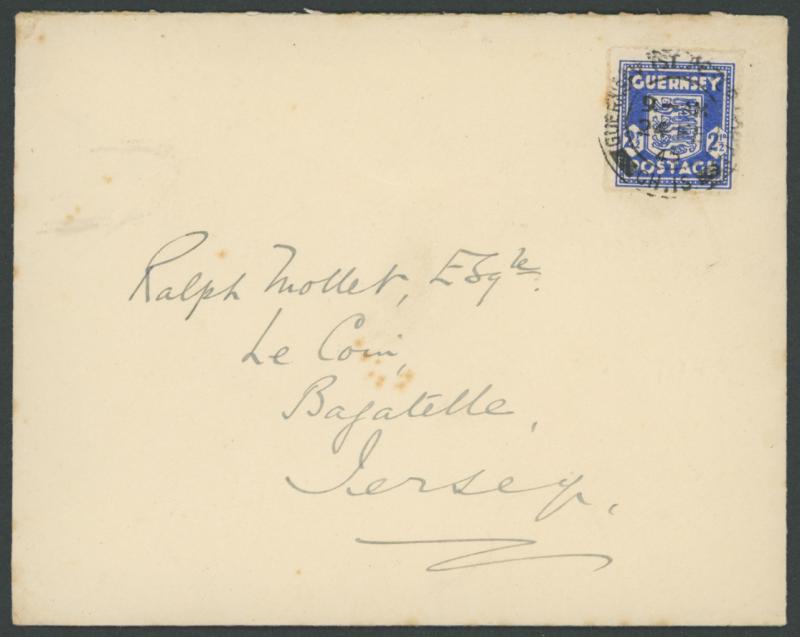 GUERNSEY
2½
2½
POSTAGE
Ralph Mollet, Esqre.
Le Coin,
Bagatelle,
Jersey,